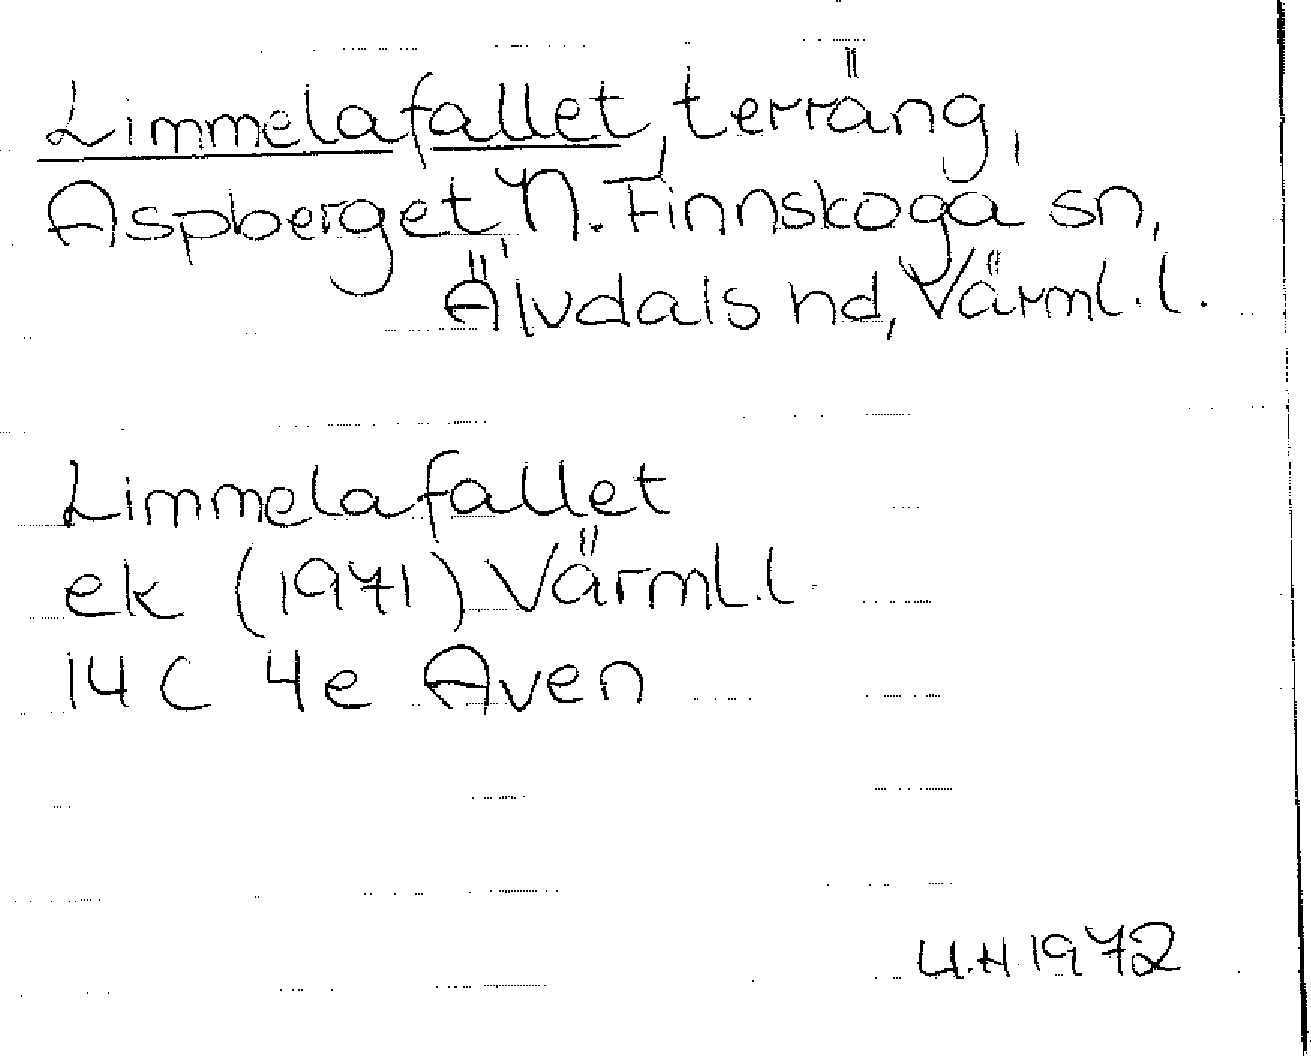 Limmelafallet, terräng,
Aspberget, N. Finnskoga sn,
Älvdals hd, Värml. l.
Limmelafallet
ek (1971) Värml. l
14 C 4e Aven
U.H 1972